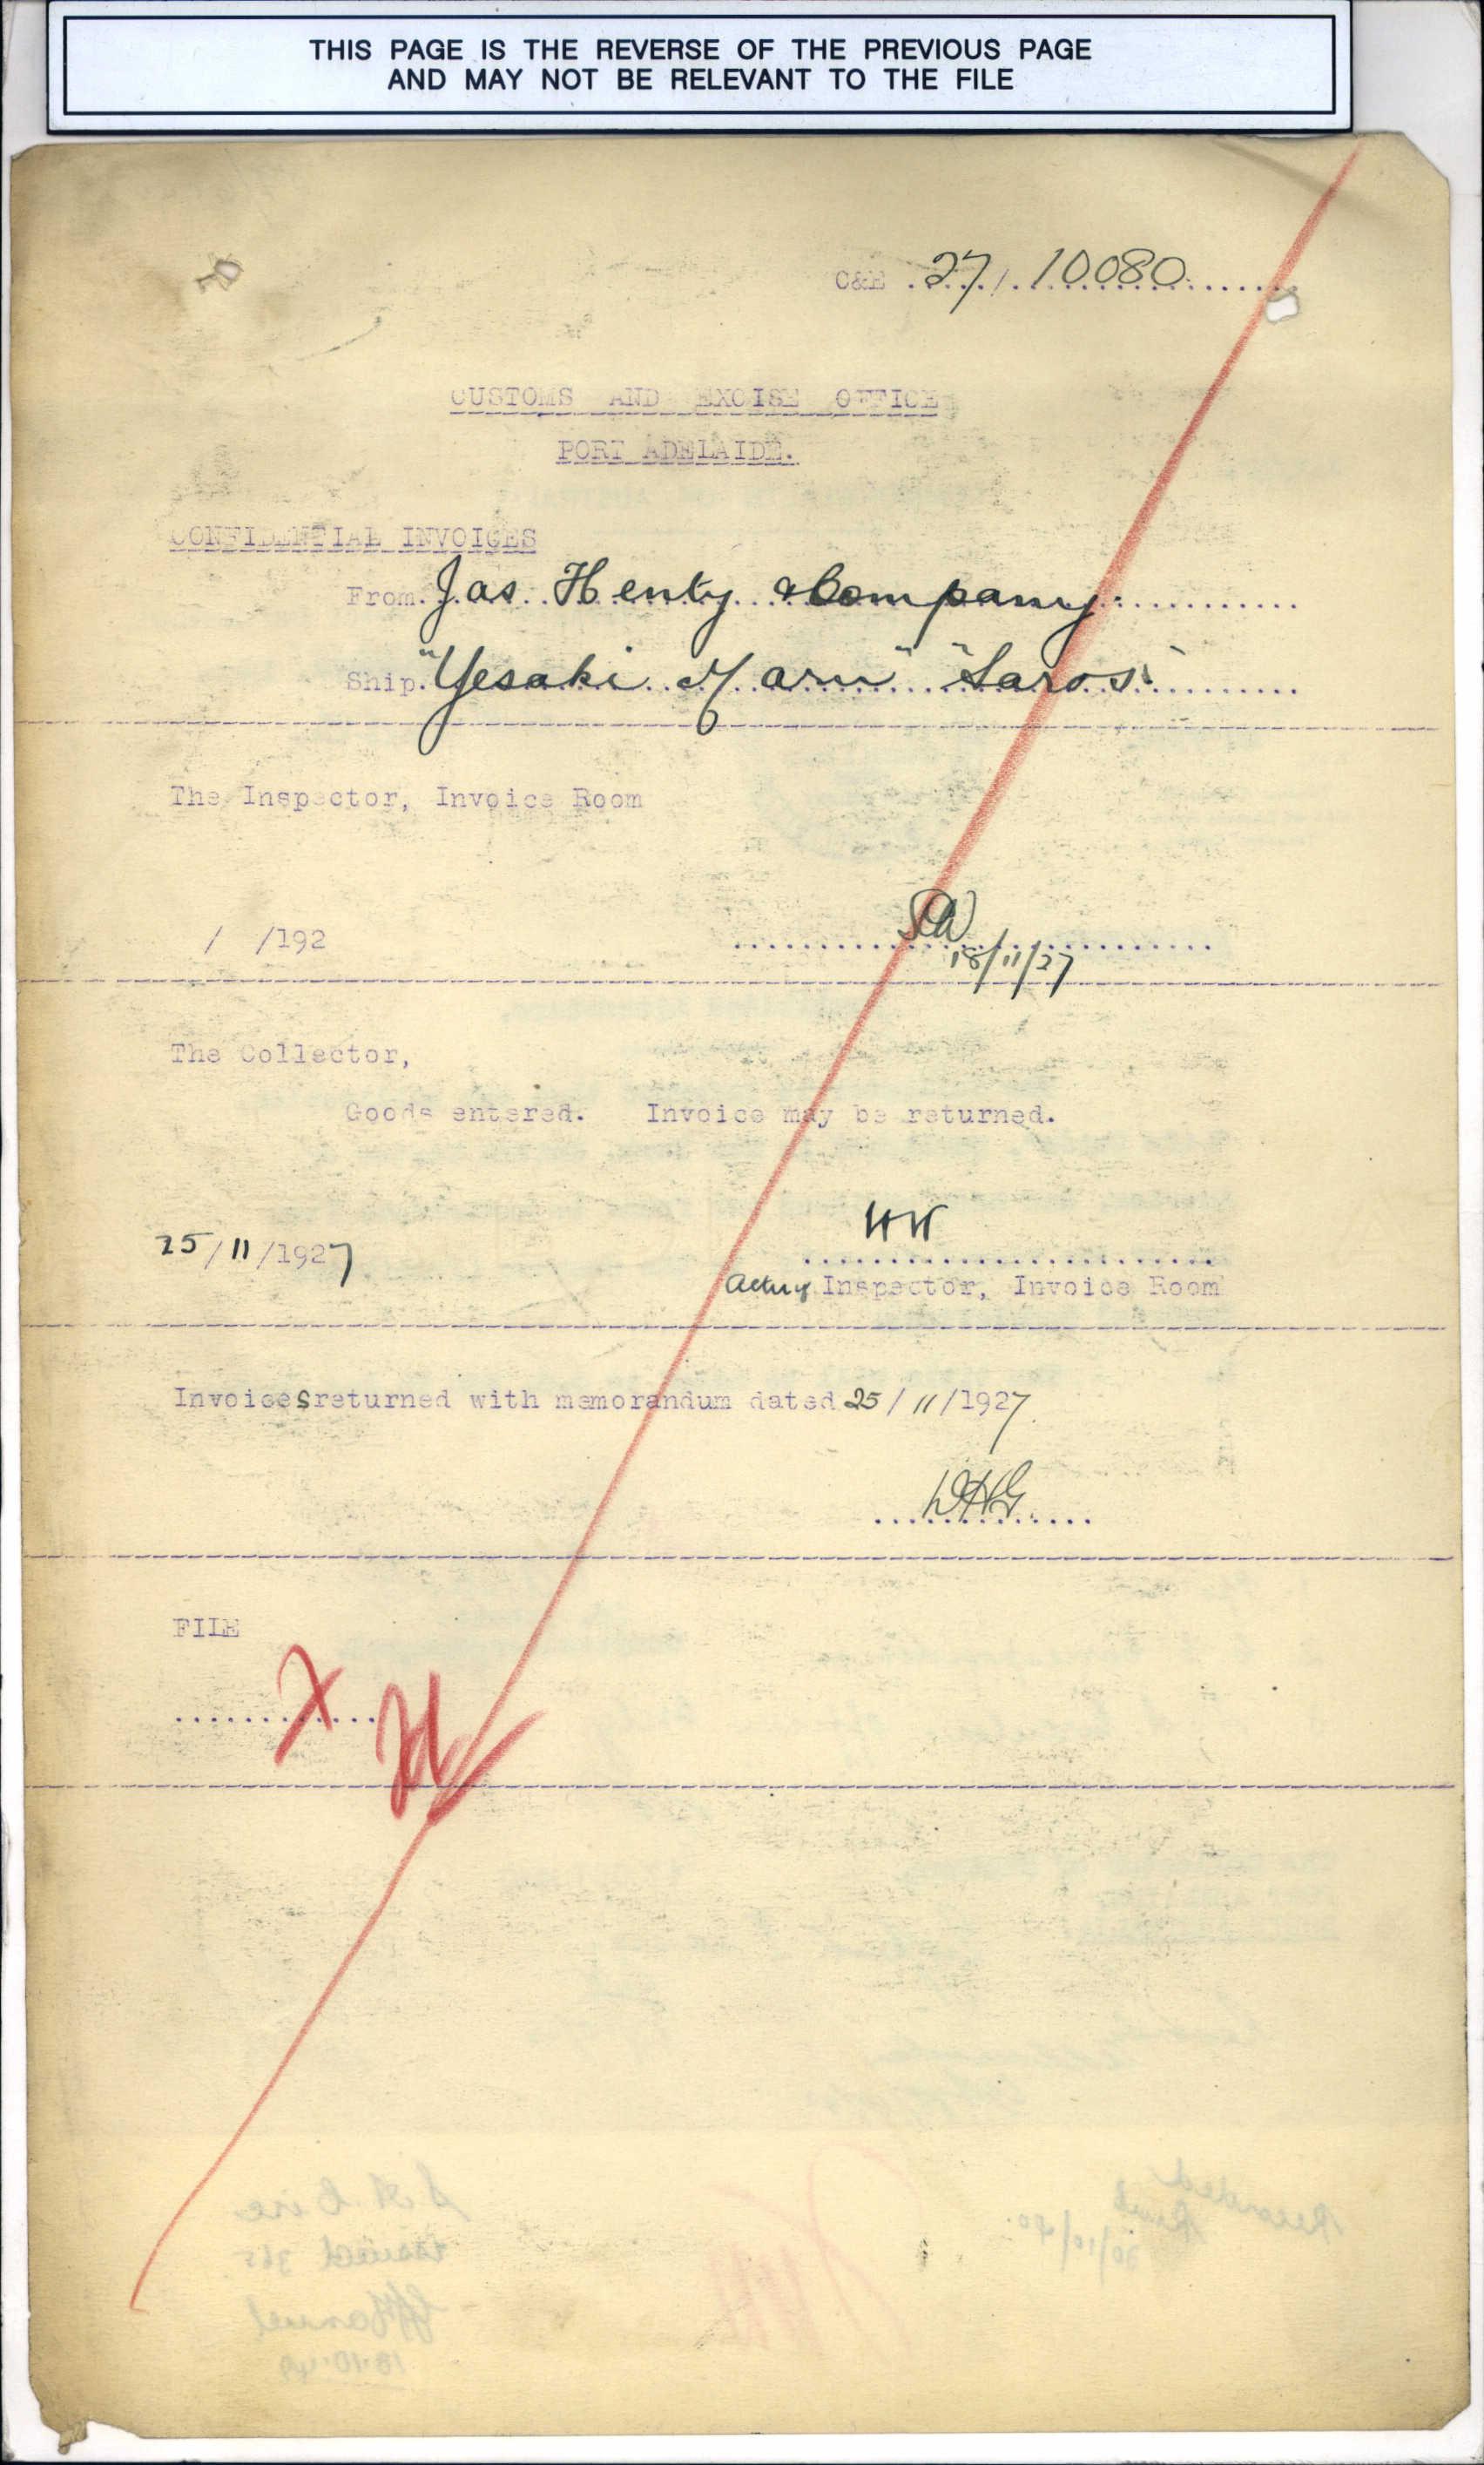 THIS PAGE IS THE REVERSE OF THE PREVIOUS PAGE
AND MAY NOT BE RELEVANT TO THE FILE
C&E 27/10080
CUSTOMS AND EXCISE OFFICE
PORT ADELAIDE.
CONFIDENTIAL INVOICES
From Jas Henty & Company
Ship "Yesaki Maru" "Saros"
The Inspector, Invoice Room
/ /192
18/11/27
The Collector,
Goods entered. Invoice may be returned.
25/11/1927
Acting Inspector, Invoice Room
Invoices returned with memorandum dated 25/11/1927.
WHG
FILE